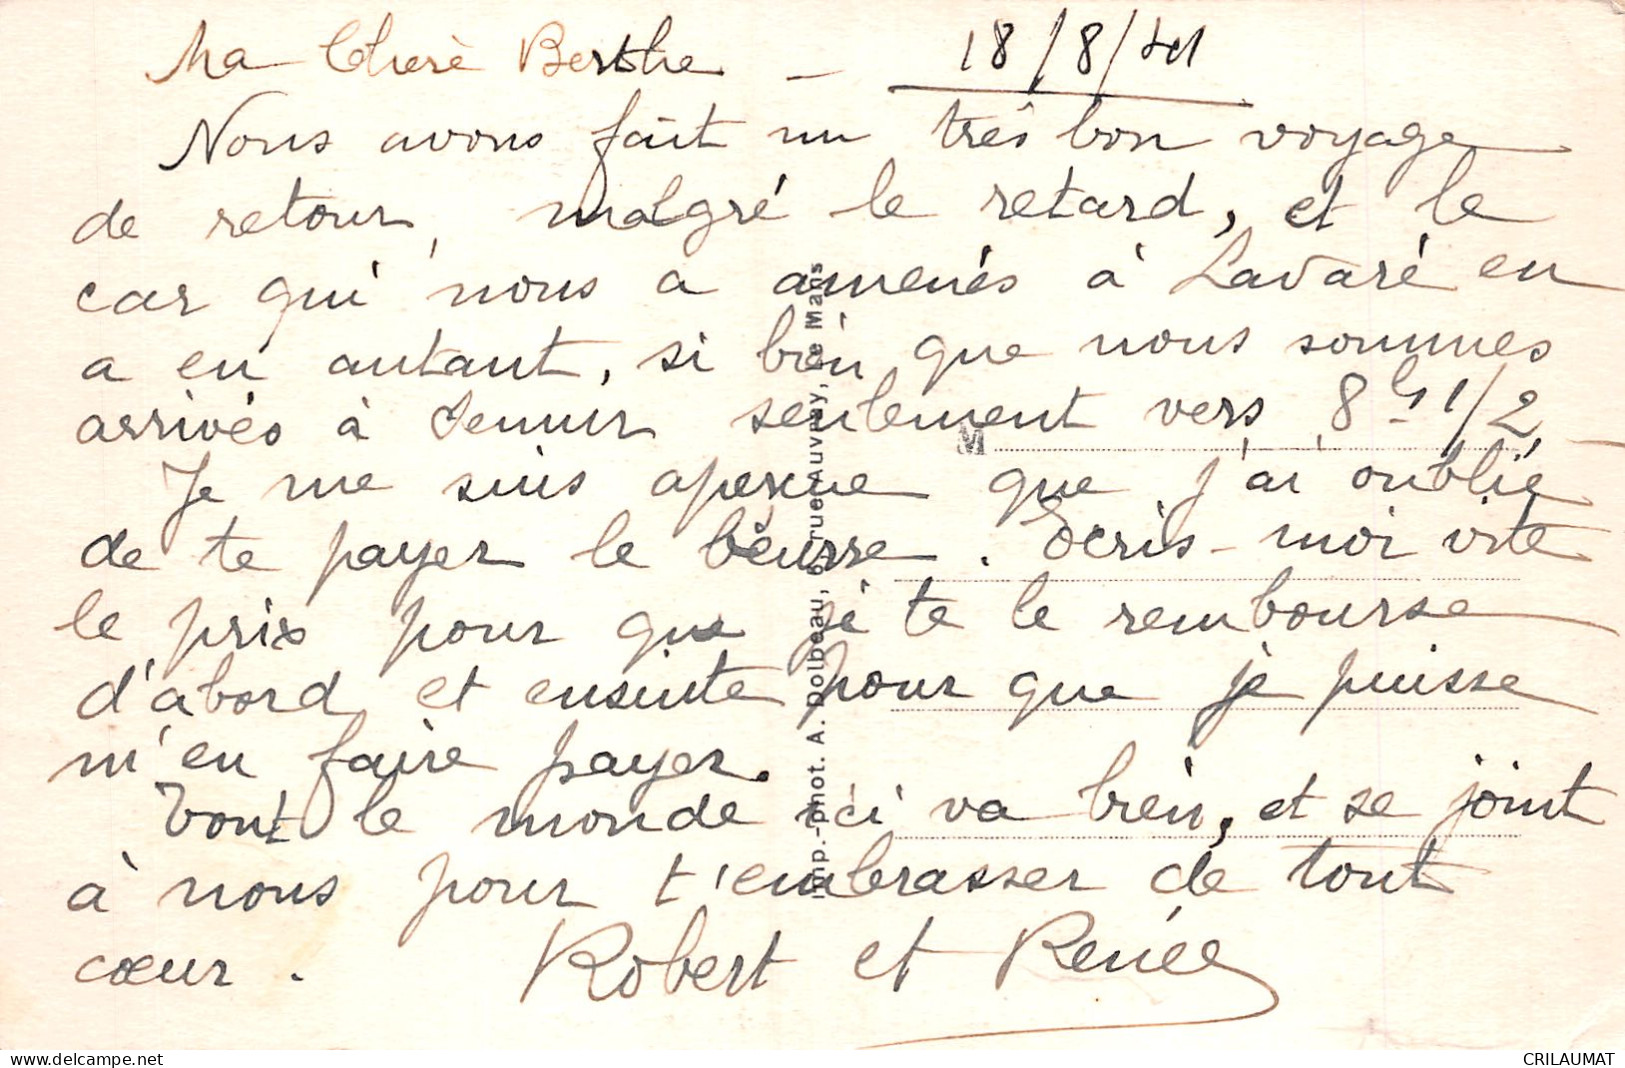 Ma Chère Berthe – 18/8/41
Nous avons fait un très bon voyage
de retour, malgré le retard, et le
car qui nous a amenés à Lavaré en
a en autant, si bien que nous sommes
arrivés à seulement vers 8h 1/2 –
Je me suis aperçue que j'ai oublié
de te payer le beurre. Ecris-moi vite
le prix pour que je te le rembourse
d'abord et ensuite pour que je puisse
m'en faire payer.
Tout le monde ici va bien, et se joint
à nous pour t'embrasser de tout
cœur. Robert et Renée
Imp.-phot. A. Dolbeau, rue Auvray, Le Mans
M
delcampe.net
CRILAUMAT